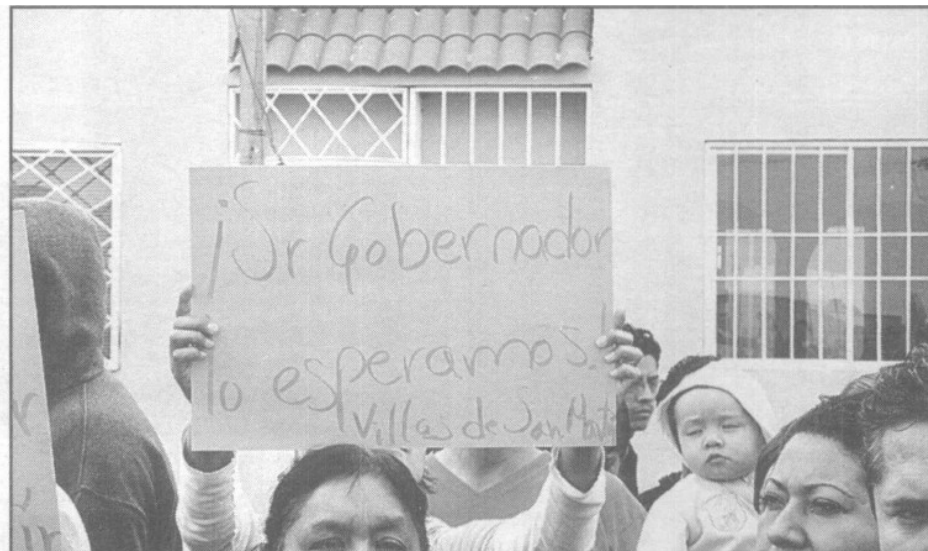 ¡Sr Gobernador
lo esperamos!
Villas de San